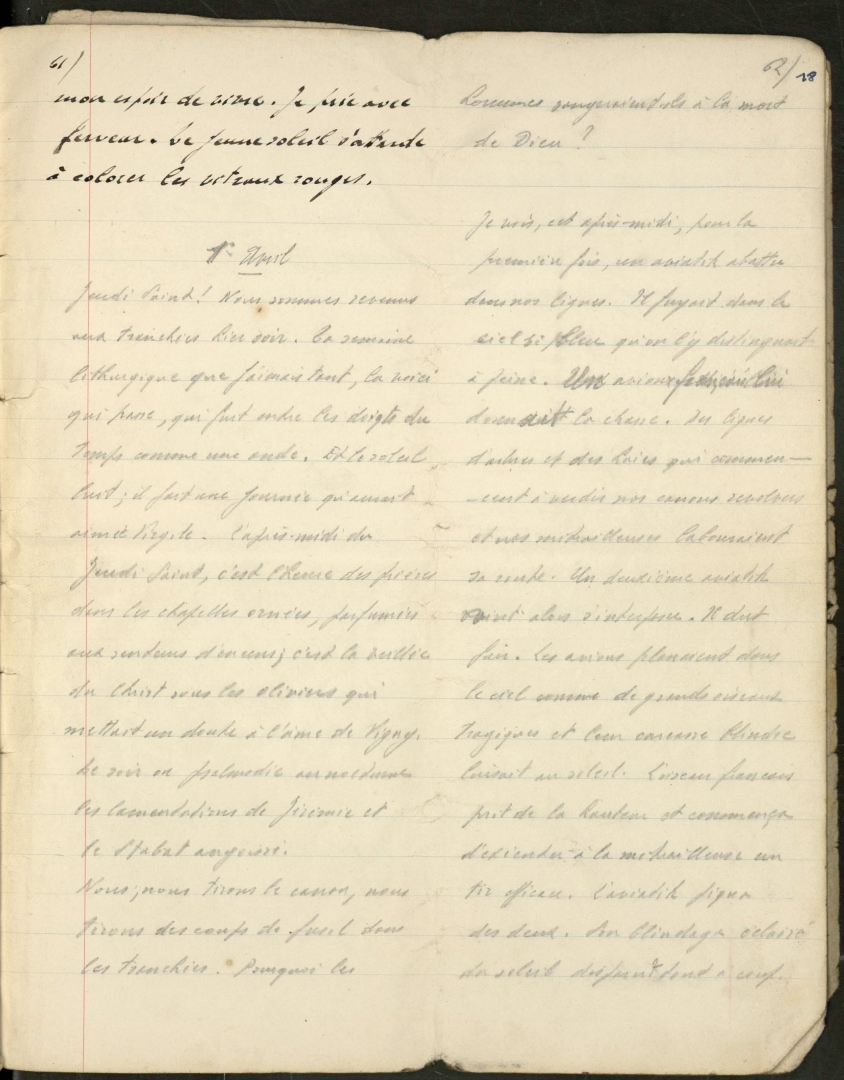 61/
mon espoir de vivre. Je prie avec
ferveur. Le jeune soleil s'attarde
à colorer les vitraux rouges.
1er Avril
Jeudi Saint! Nous sommes revenus
aux tranchées hier soir. La semaine
lithurgique que j'aimais tant, la voici
qui passe, qui fuit entre les doigts du
Temps comme une onde. Et le soleil
luit; il fait une journée qu'aurait
aimée Virgile. L'après-midi du
Jeudi Saint, c'est l'heure des prières
dans les chapelles ornées, parfumées
aux senteurs d'encens; c'est la veillée
du Christ sous les oliviers qui
mettait un doute à l'âme de Vigny.
Le soir on psalmodie au nocturne
les lamentations de Jérémie et
le Stabat angoissé.
Nous, nous tirons le canon, nous
tirons des coups de fusil dans
les tranchées. Pourquoi les
62/ 28
hommes songeraient-ils à la mort
de Dieu?
Je vois, cet après-midi, pour la
première fois, un aviatik abattu
dans nos lignes. Il fuyait dans le
ciel si bleu qu'on l'y distinguait
à peine. Un avion français lui
donnait la chasse. Des lignes
d'arbres et des haies qui commen-
-cent à verdir nos canons revolvers
et nos mitrailleuses labouraient
sa route. Un deuxième aviatik
vint alors s'interposer. Il dut
fuir. Les avions planaient dans
le ciel comme de grands oiseaux
tragiques et leur carcasse blindée
luisait au soleil. L'oiseau français
prit de la hauteur et commença
d'exécuter à la mitrailleuse un
tir efficace. L'aviatik piqua
des deux. Son blindage éclairé
du soleil disparut tout à coup.